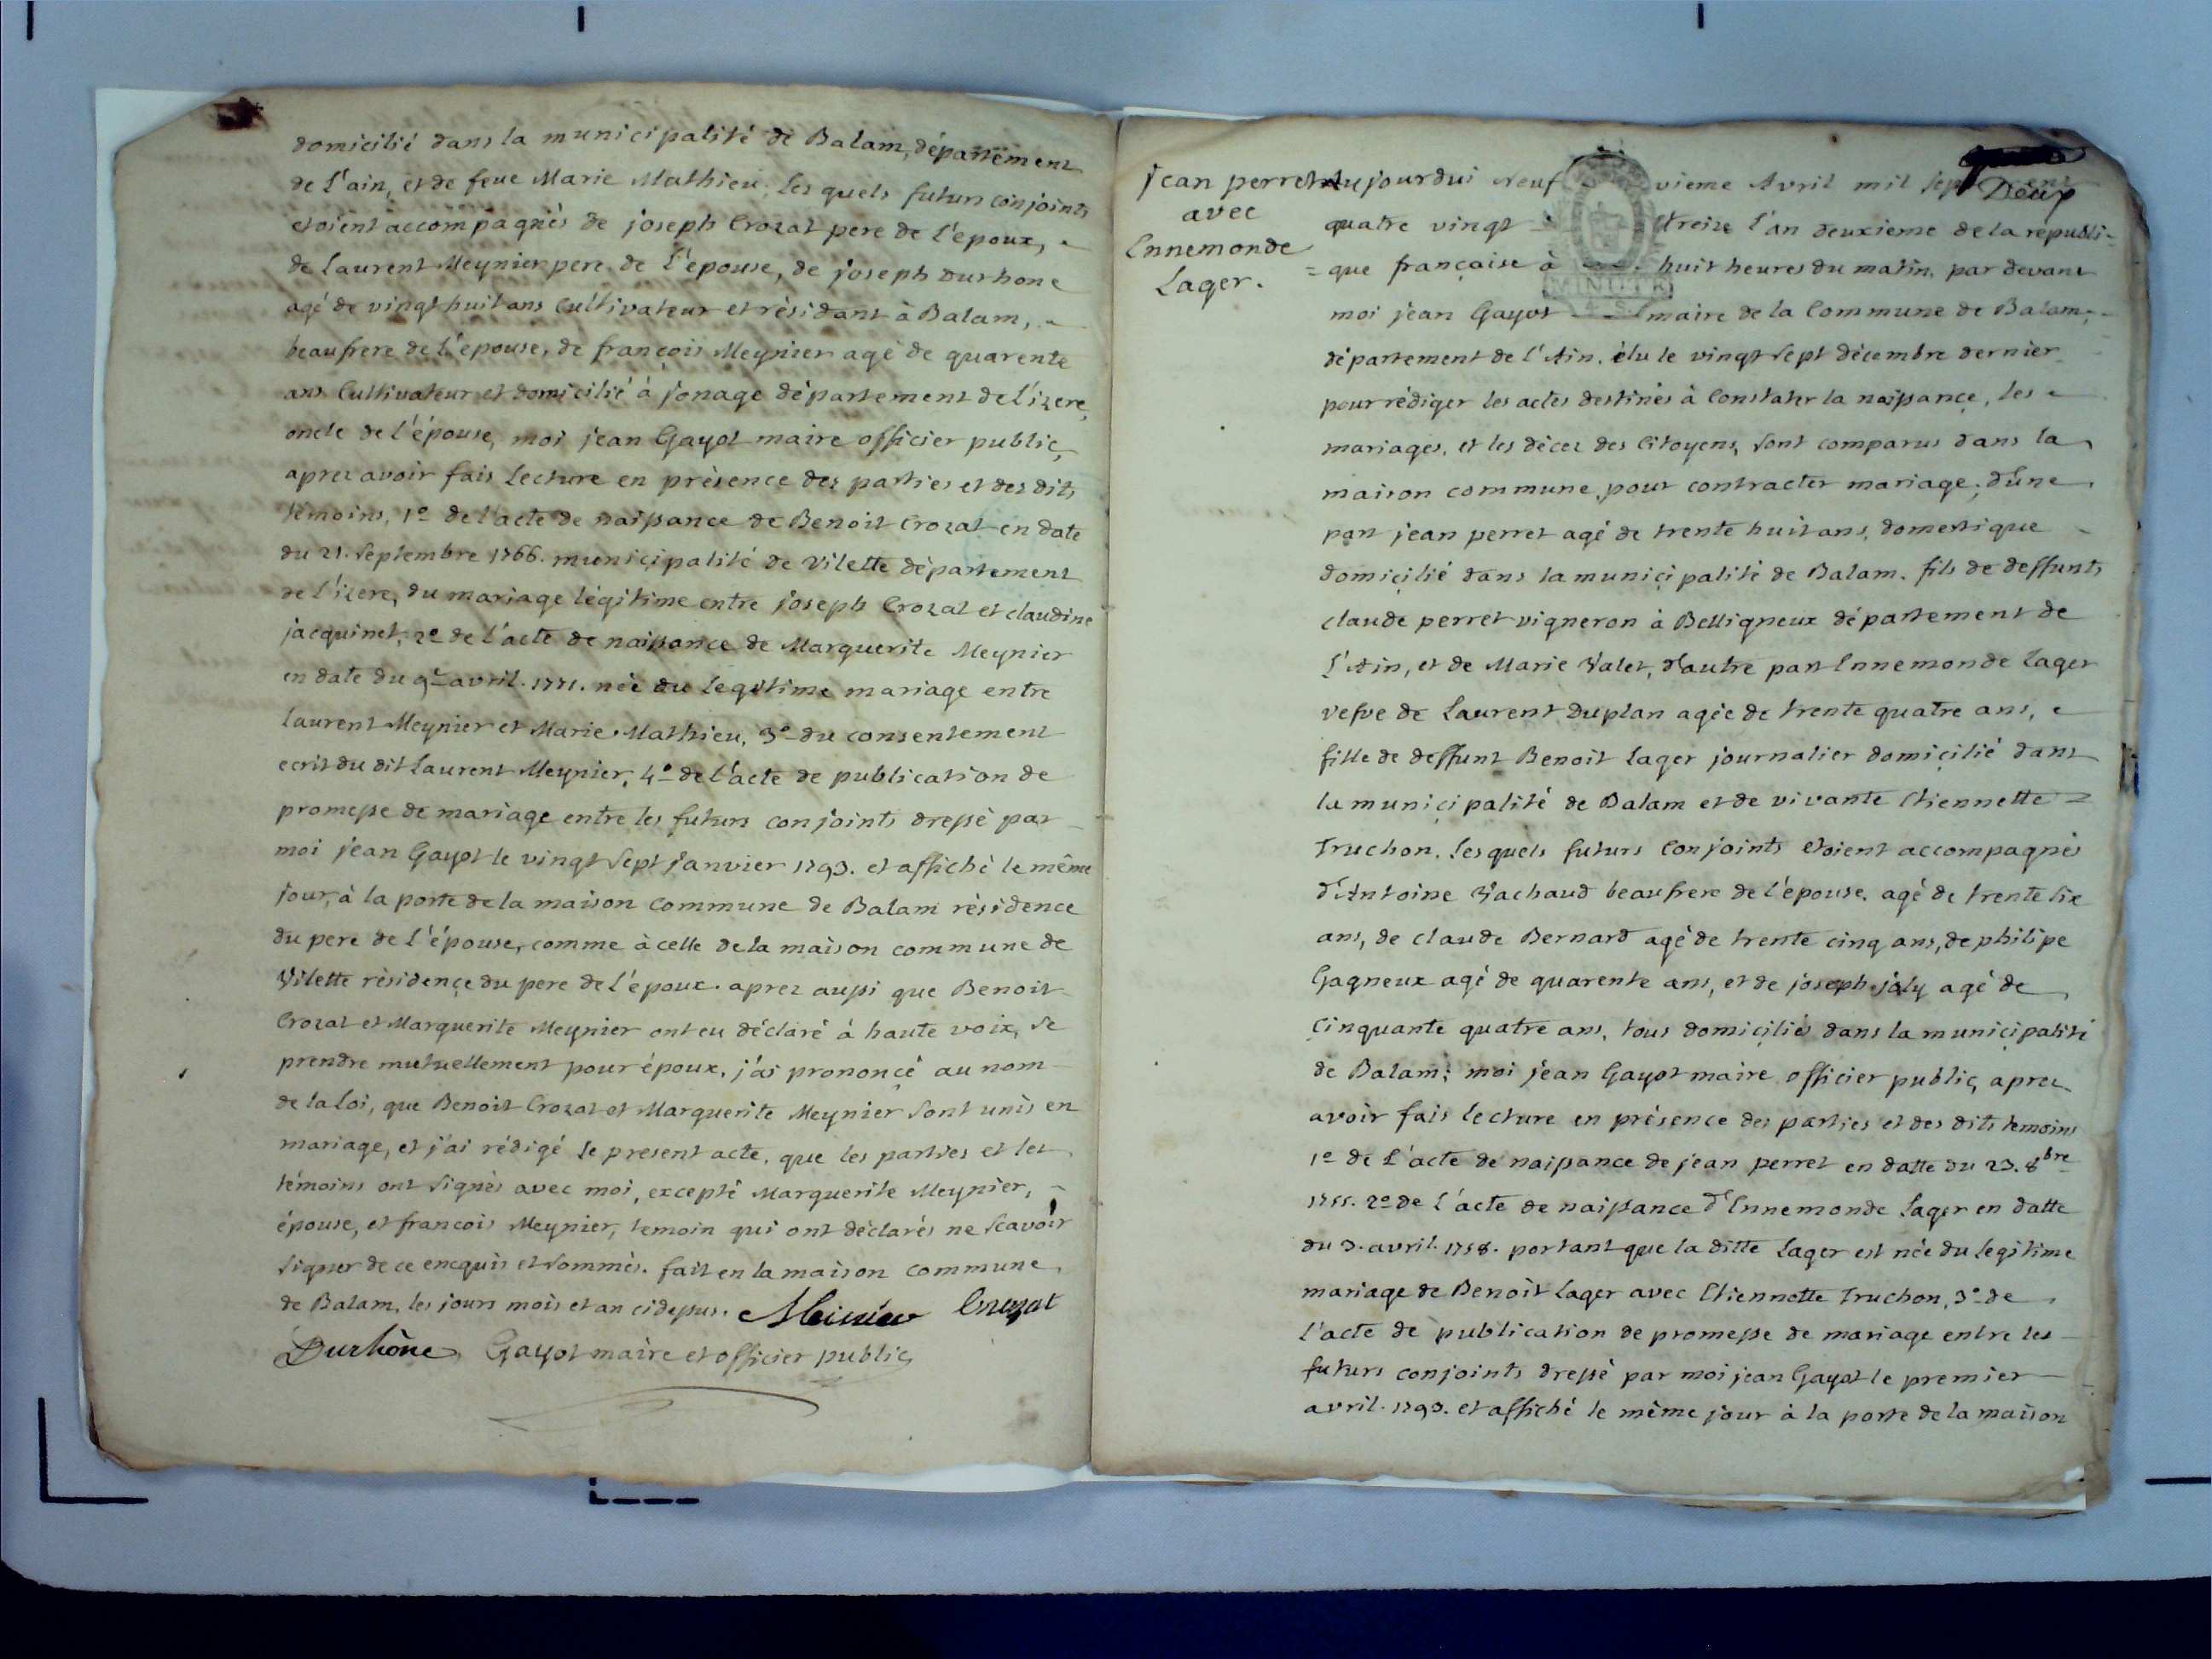 domicilié dans la municipalité de Balam, département
de l'ain, et de feue Marie Mathieu. les quels futurs conjoints
etoient accompagnés de joseph Crozat pere de l'epoux,
de Laurent Meynier pere de l'epouse, de joseph Durhone
agé de vingt huit ans Cultivateur et résidant à Balam,
beaufrere de l'epouse, de françois Meynier agé de quarente
ans Cultivateur et domicilié à jonage département de l'izere,
oncle de l'épouse, moi jean Gayot maire officier public,
aprez avoir fais lecture en présence dez parties et dez dits
témoins, 1º de l'acte de naissance de Benoit Crozat en date
du 21. Septembre 1766. municipalité de Vilette département
de l'izere, du mariage légitime entre joseph Crozat et claudine
jacquinet, 2º de l'acte de naissance de Marguerite Meynier
en date du 9e avril. 1771. née du legitime mariage entre
Laurent Meynier et Marie Mathieu, 3º du consentement
ecrit du dit Laurent Meynier, 4º de l'acte de publication de
promesse de mariage entre les futurs conjoints dressé par
moi jean Gayot le vingt Sept janvier 1793. et affiché le même
jour, à la porte de la maison commune de Balam résidence
du pere de l'épouse, comme à celle de la maison commune de
Vilette résidençe du pere de l'époux. aprez aussi que Benoit
Crozat et Marguerite Meynier ont eu déclaré à haute voix, se
prendre mutuellement pour époux, j'ai prononçé au nom
de la Loi, que Benoit Crozat et Marguerite Meynier sont unis en
mariage, et j'ai rédigé le present acte, que les parties et les
témoins ont signés avec moi, excepté Marguerite Meynier,
épouse, et francois Meynier, temoin qui ont déclarés ne scavoir
signer de ce encquis et sommés. fait en la maison commune
de Balam, les jours mois et an cidessus. Meinier Crozat
Durhône Gayot maire et officier public
Deux
jean perret
avec
Ennemonde
Lager.
Aujourdui Neuf vieme Avril mil sept cent
quatre vingt treize l'an deuxieme de la republi-
= que française à huit heures du matin, par devant
MINUTE
moi jean Gayot maire de la Commune de Balam,
département de l'Ain. élu le vingt sept décembre dernier
pour rédiger les actes destinés à Constater la naissançe, les
mariages, et les décez des Citoyens, sont comparus dans la
maison commune, pour contracter mariage; d'une
part jean perret agé de trente huit ans, domestique
domiçilié dans la muniçipalité de Balam. fils de deffunts
claude perret vigneron à Belligneux département de
l'Ain, et de Marie Valet, d'autre part Ennemonde Lager
vefve de Laurent Duplan agée de trente quatre ans,
fille de deffunt Benoit Lager journalier domiçilié dans
la muniçipalité de Balam et de vivante Etiennette
Truchon. les quels futurs Conjoints etoient accompagnés
d'Antoine Vachaud beaufrere de l'épouse. agé de trente six
ans, de claude Bernard agé de trente cinq ans, de philipe
Gagneux agé de quarente ans, et de joseph joly agé de
Çinquante quatre ans, tous domiçiliés dans la muniçipalité
de Balam; moi jean Gayot maire officier public, aprez
avoir fais lecture en présence des parties et des dits temoins
1º de l'acte de naissance de jean perret en datte du 23. 8bre
1755. 2º de l'acte de naissance d'Ennemonde Lager en datte
du 3. avril. 1758. portant que la ditte Lager est née du legitime
mariage de Benoit Lager avec Etiennette Truchon, 3º de
l'acte de publication de promesse de mariage entre les
futurs conjoints dressé par moi jean Gayot le premier
avril. 1793. et affiché le même jour à la porte de la maison